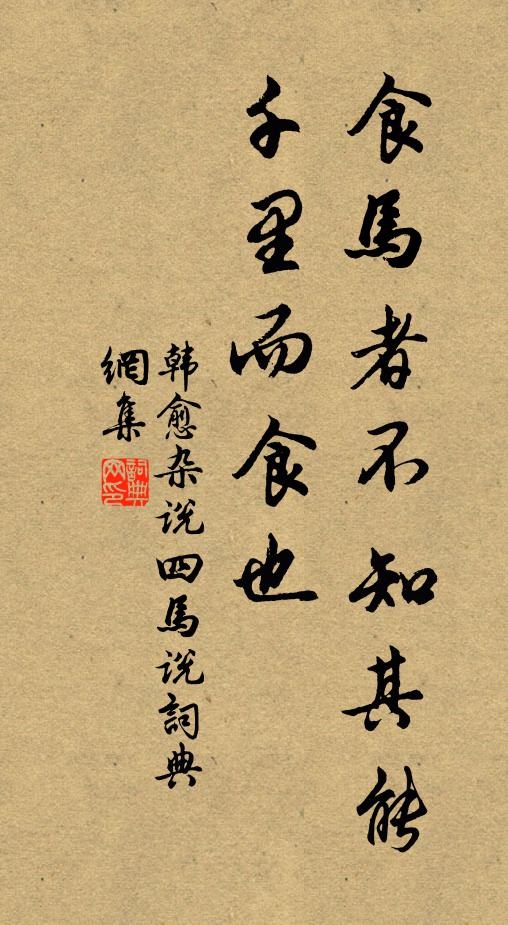 食馬者不知其能
千里而食也
韩愈杂说四馬说詞典
網集
詞典
网印